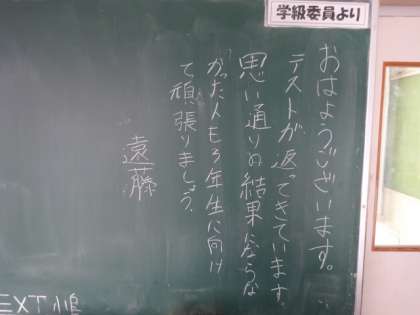 学級委員より
おはようございます。
テストが返ってきています。
思い通りの結果にならな
かった人も3年生に向け
て頑張りましょう。
遠藤
EXT